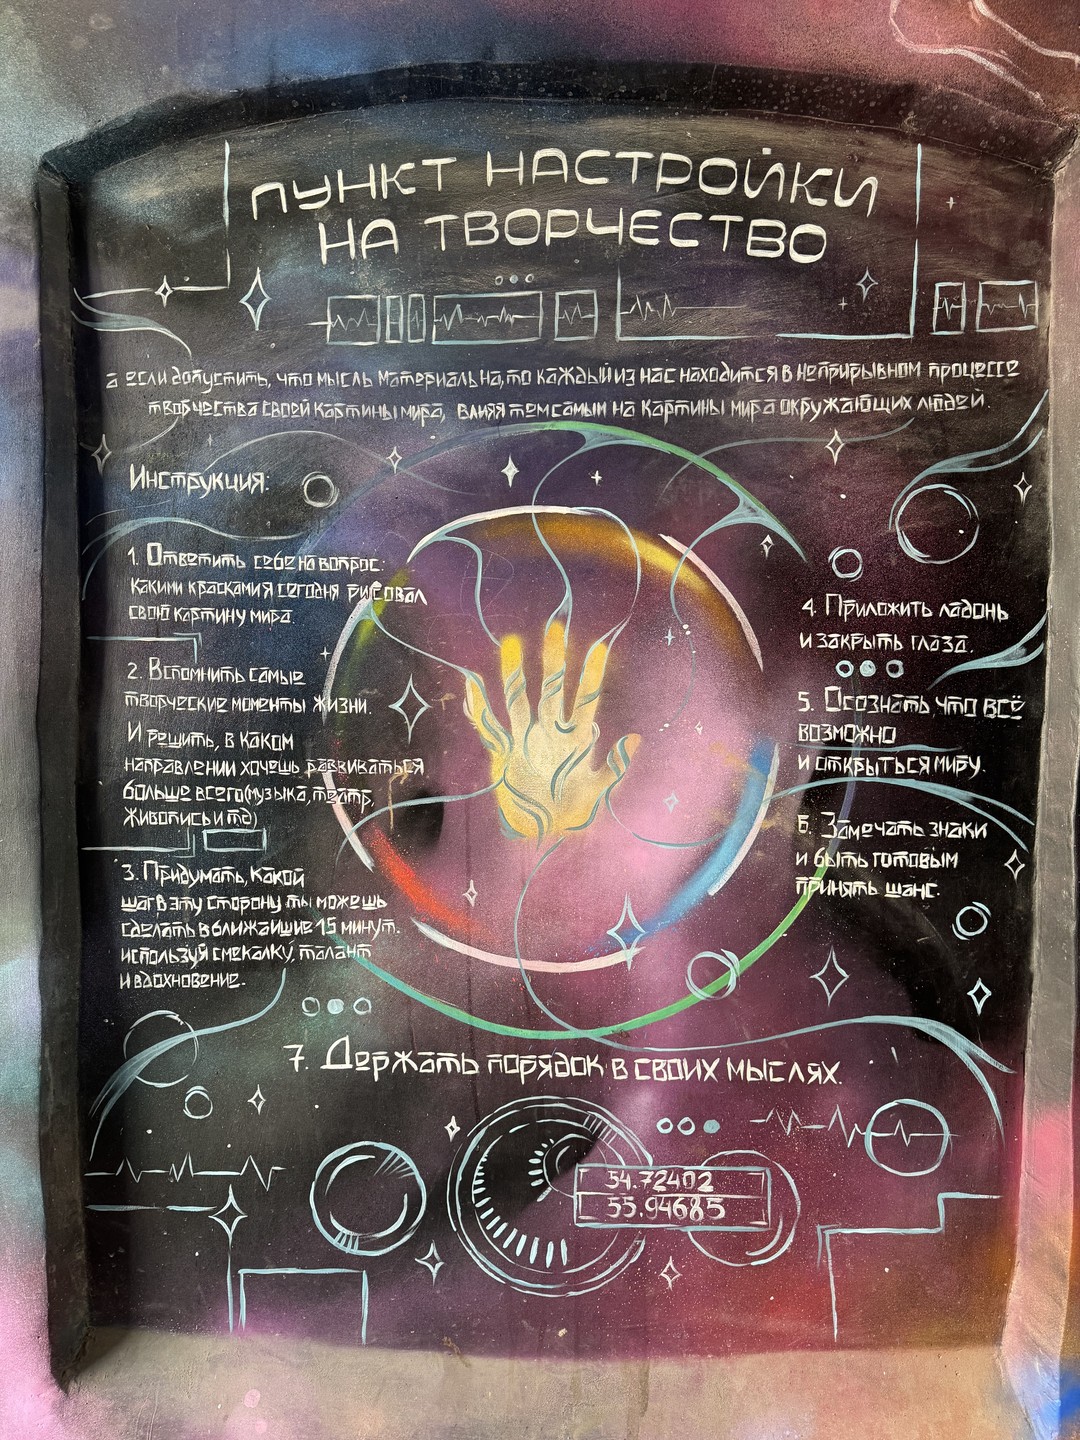 ПУНКТ НАСТРОЙКИ
НА ТВОРЧЕСТВО
а если допустить, что мысль материальна, то каждый из нас находится в неприрывном процессе
творчества своей картины мира, влияя тем самым на картины мира окружающих людей.
Инструкция:
1. Ответить себе на вопрос:
какими красками я сегодня рисовал
свою картину мира
2. Вспомнить самые
творческие моменты жизни.
И решить, в каком
направлении хочешь развиваться
больше всего (музыка, театр,
живопись и тд)
3. Придумать, какой
шаг в эту сторону ты можешь
сделать в ближайшие 15 минут.
используя смекалку, талант
и вдохновение.
4. Приложить ладонь
и закрыть глаза.
5. Осознать, что всё
возможно
и открыться миру.
6. Замечать знаки
и быть готовым
принять шанс.
7. Держать порядок в своих мыслях.
54.72402
55.94685